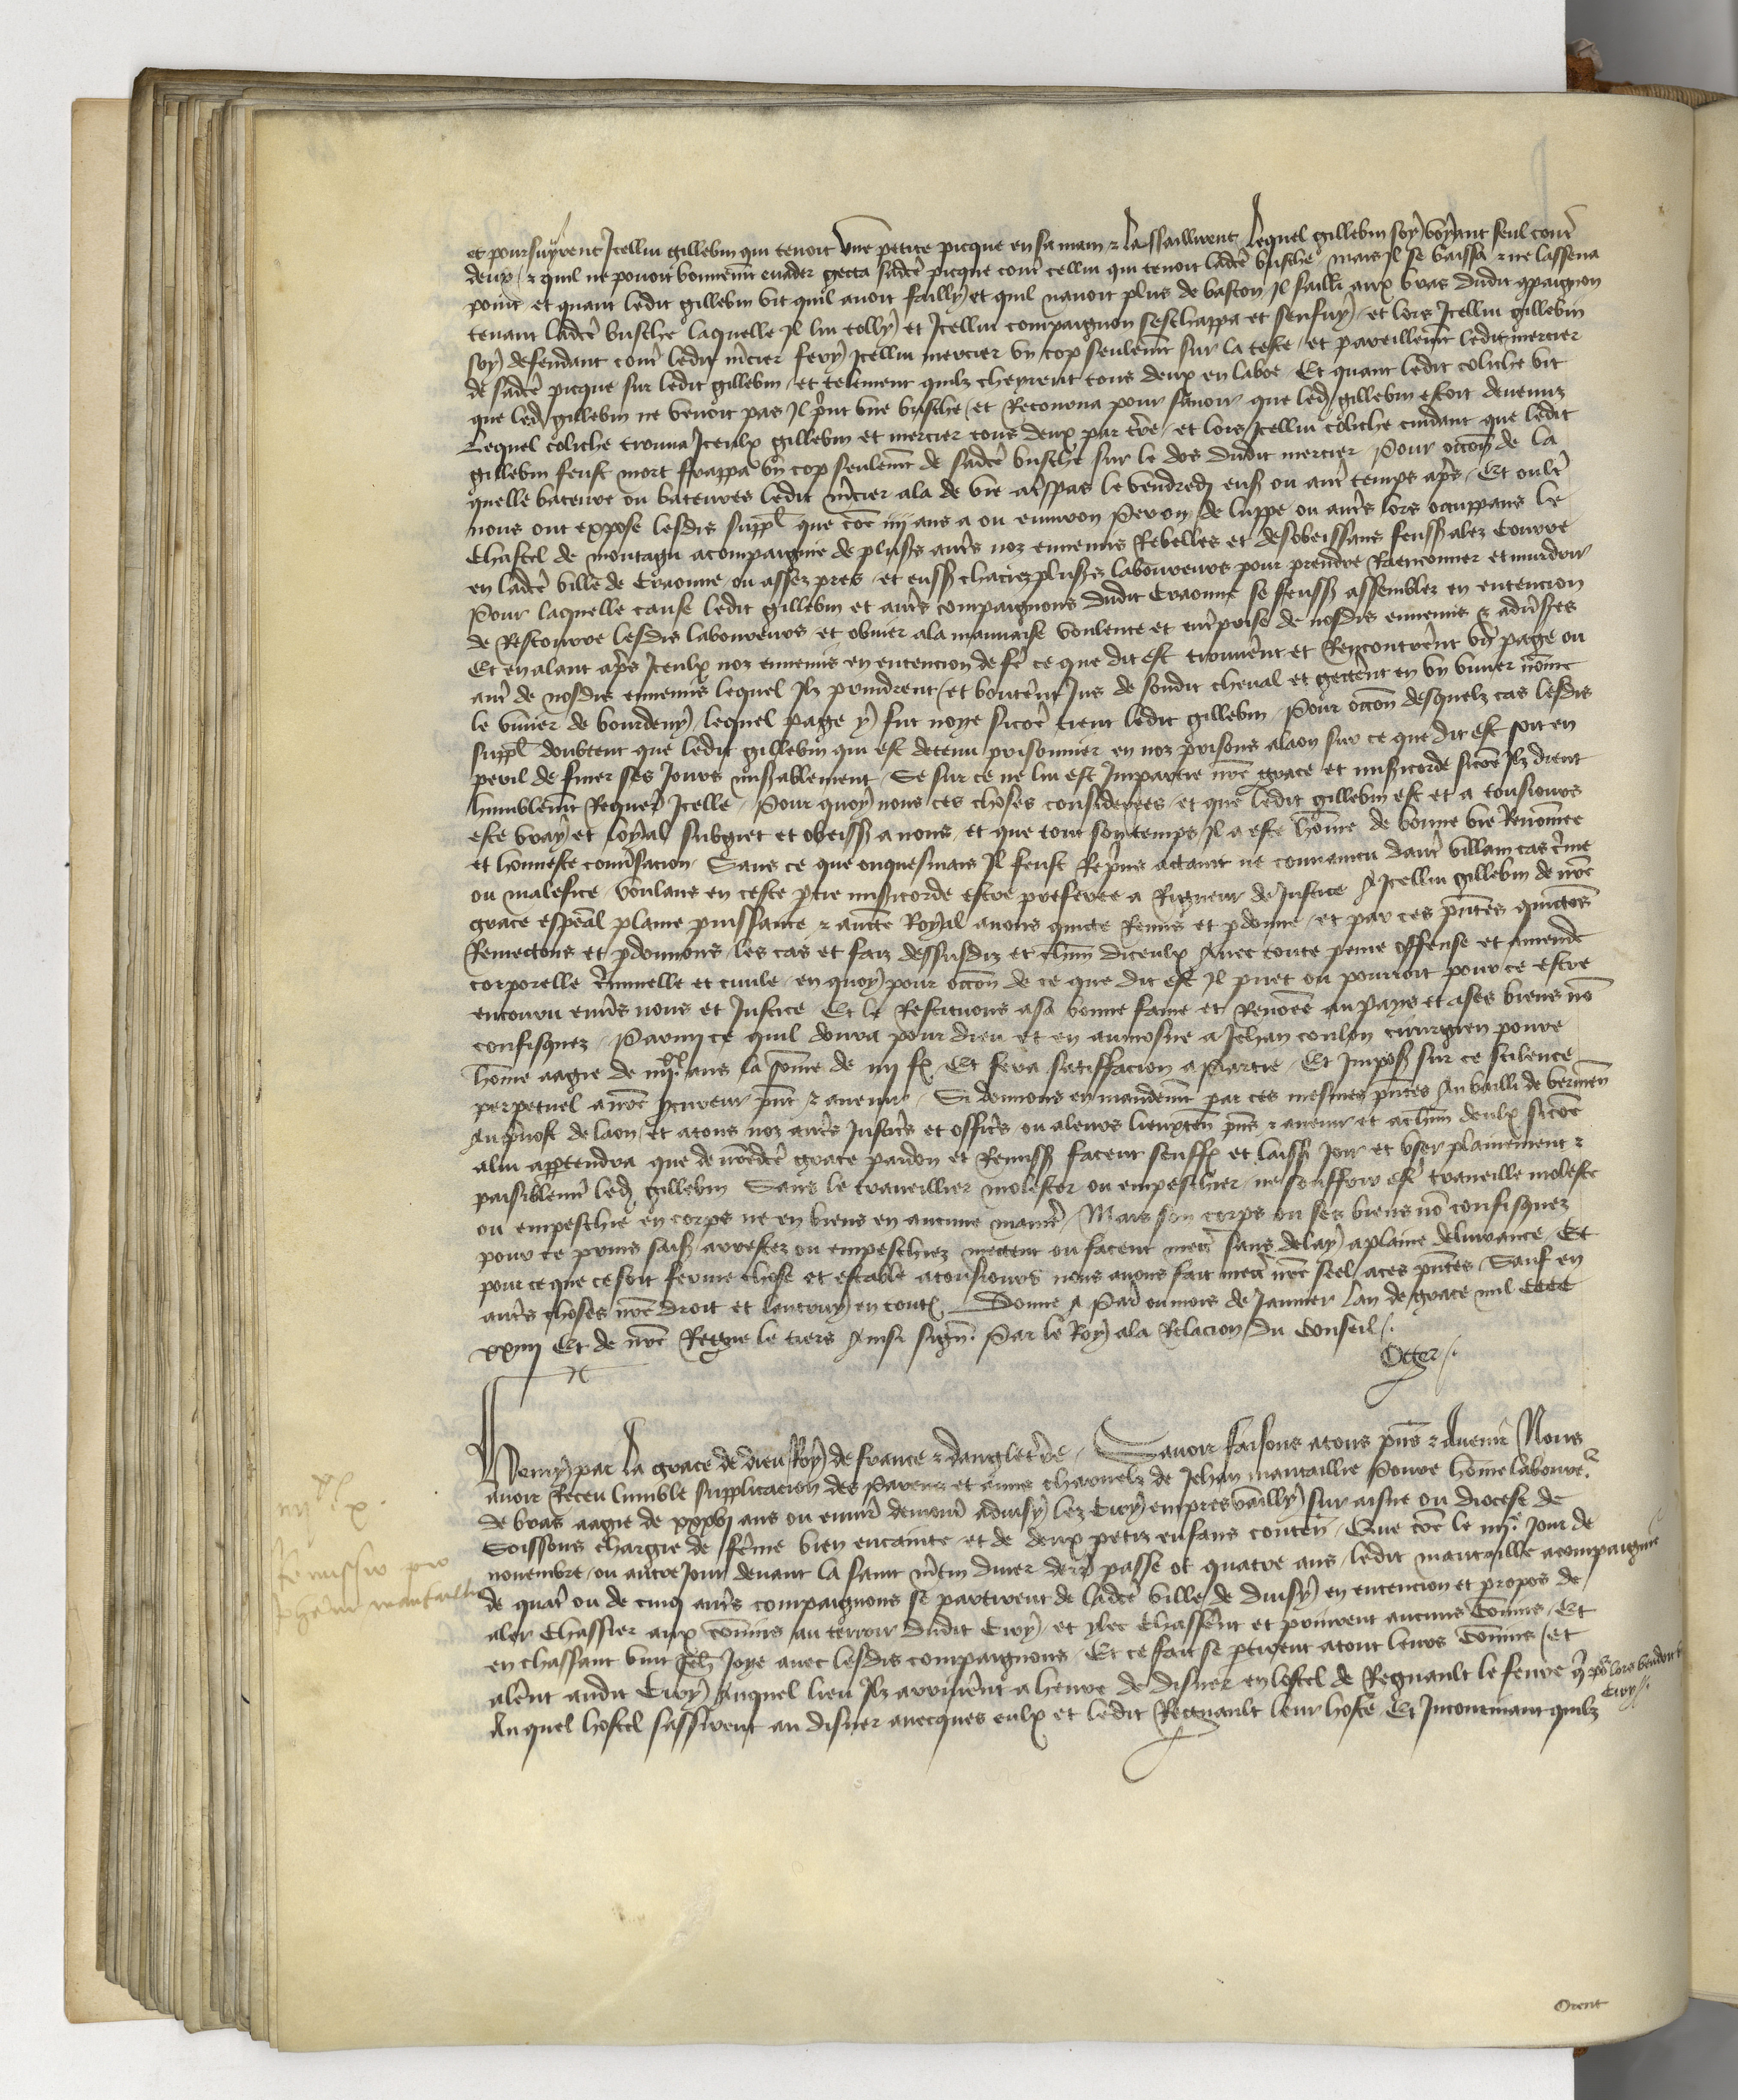 et poursuyvent Icellui gillebin qui tenoit vne petite picque en sa main & lassaillirent lequel gillebin soy voyant seul cont
deux & quil ne pouoit bonnemt euader gecta sadce picque cont cellui qui tenoit ladce busche mais Il se baissa & ne lassena
point et quant ledit gillebin vit quil auoit failly et quil nauoit plus de baston Il sailli aux bras dudit gpaignon
tenant ladce busche laquelle Il lui tolly et Icellui compaignon seschappa et senfuy et lors Icellui gillebin
soy defendant cont ledit mcier fery Icellui mercier vn cop seulemt sur la teste et pareillemt ledit mercier
de sadce picque sur ledit gillebin et telement quilz cheyrent tous deux en laboe Et quant ledit coliche vit
que led gillebin ne venoit pas Il print vne busche et Retourna pour sauoir que led gillebin estoit deuenuz
Lequel coliche trouua Iceulx gillebin et mercier tous deux par tre et lors Icellui coliche cuidant que ledit
gillebin feust mort frappa vn cop seulemt de sadce busche sur le dos dudit mercier Pour occon de la
quelle bateure ou bateures ledit mcier ala de vie a tspas le vendredi ens ou autre temps aps Et oult
nous ont expose lesdis suppl que come iiij ans a ou enuiron Peron de luppe ou autrs lors occuppans le
Chastel de montagu acompaigne de plusrs autrs noz ennemis Rebelles et desobeissans feussent alez Courre
en ladce ville de Craonne ou assez pres et eussent chaciez plusrs laboureurs pour prendre Raenconner et murdrir
Pour laquelle cause ledit gillebin et autrs compaignons dudit Craonne se feussent assemblez en entencion
de Rescourre lesdis laboureurs et obuier ala mauuaise voulente et entprise de nosdis ennemis & aduersres
Et en alant aps Iceulx noz ennemis en entencion de fe ce que dit est trouuernt et Rencontrernt vn page ou
autre de nosdis ennemis lequel Ilz prindrent et bouternt Jus de sondit cheual et gecternt en vn viuier nome
le viuier de bourdeny lequel page y fut noye sicome tient ledit gillebin Pour occon desquelz cas lesdis
suppl doubtent que ledit gillebin qui est detenu prisonnier en noz prisons alaon sur ce que dit est soit en
peril de finer ses Jours misablement Se sur ce ne lui est Impartie nre grace et misicorde sicome Ilz dient
humblemt Requer Icelle Pour quoy nous ces choses considerees et que ledit gillebin est et a tousiours
este vray et loyal subgiet et obeiss a nous et que tout son temps Il a este home de bonne vie Renomee
et honneste conusacion Sans ce que onquesmais Il feust Repins actaint ne conuaincu daut villain cas cme
ou malefice voulans en ceste ptie misicorde estre preferee a Rigueur de Justice A Icellui gillebin de nre
grace especal plaine puissance & aucte Royal auons quicte Remis et pdonne et par ces pntes quictons
Remectons et pdonnons les cas et faiz dessusdiz et chun diceulx Auec toute peine offense et amende
corporelle cminelle et ciuile en quoy pour occon de ce que dit est Il puet ou pourroit pour ce estre
encouru enus nous et Justice Et le Restituons asa bonne fame et Renomee au pays et ases biens no
confisquez Parmy ce quil donra pour dieu et en aumosne a Jehan coulon cirurgien poure
home aagie de iiijxx ans la some de iiij fr Et fera satiffacion a Partie Et Impos sur ce silence
perpetuel anre pcureur pnt & auenir Si donnons en mandemt par ces mesmes pntes Au bailli de vermen
Au puost de laon et atous noz autrs Justicrs et officrs ou aleurs lieuxten pns & auenir et achun deulx sicome
alui apptendra que de nredce grace pardon et Remiss facent seuff et laiss Joir et vser plainement &
paisiblemt led gillebin Sans le trauaillier molester ou empeschier ne souffrir estre trauaille moleste
ou empeschie en corps ne en biens en aucune manie Mais son corps ou ses biens no confisquez
pour ce prins saisiz arrestez ou empeschiez mectent ou facent mect sans delay aplaine deliurance Et
pour ce que ce soit ferme chose et estable atousiours nous auons fait mect nre seel aces pntes Sauf en
autrs choses nre droit et lautruy en toutes Donne A Paris ou mois de Januier lan de grace mil CCCC
xxiiij Et de nre Regne le tiers Ainsi signe Par le Roy ala Relacion du Conseil
Oger
Henry par la grace de dieu Roy de france & dangletre Sauoir faisons atous pns & Auenir Nous
auoir Receu lumble supplicacion des Parens et amis charnelz de Jehan mantaillie Poure home laboure
de bras aagie de xxxvj ans ou enuiron demour aduisy lez Ciry empres vailly sur aisne ou diocese de
Soissons chargie de feme bien encainte et de deux petiz enfans contenant Que come le iiije Jour de
nouembre ou autre Jour deuant la saint mtin diuer derr passe ot quatre ans ledit mantaille acompaignie
de quatre ou de cinq autrs compaignons se partirent de ladce ville de duisy en entencion et propos de
aler Chassier aux conins au terroir dudit Ciry et ylec chassernt et prinrent aucuns Conins Et
en chassant vint Jehan Joye auec lesdis compaignons Et ce fait se ptirent atout leurs Conins et
alernt audit Ciry Auquel lieu Ilz arriuernt a heure de disner en lostel de Regnault le feure
Auquel hostel sassirent au disner auecques eulx et ledit Regnault leur hoste Et Incontinant quilz
iiijxx x
Remissio pro
Johanne mantaillie
lors vendant
Ciry
Orent